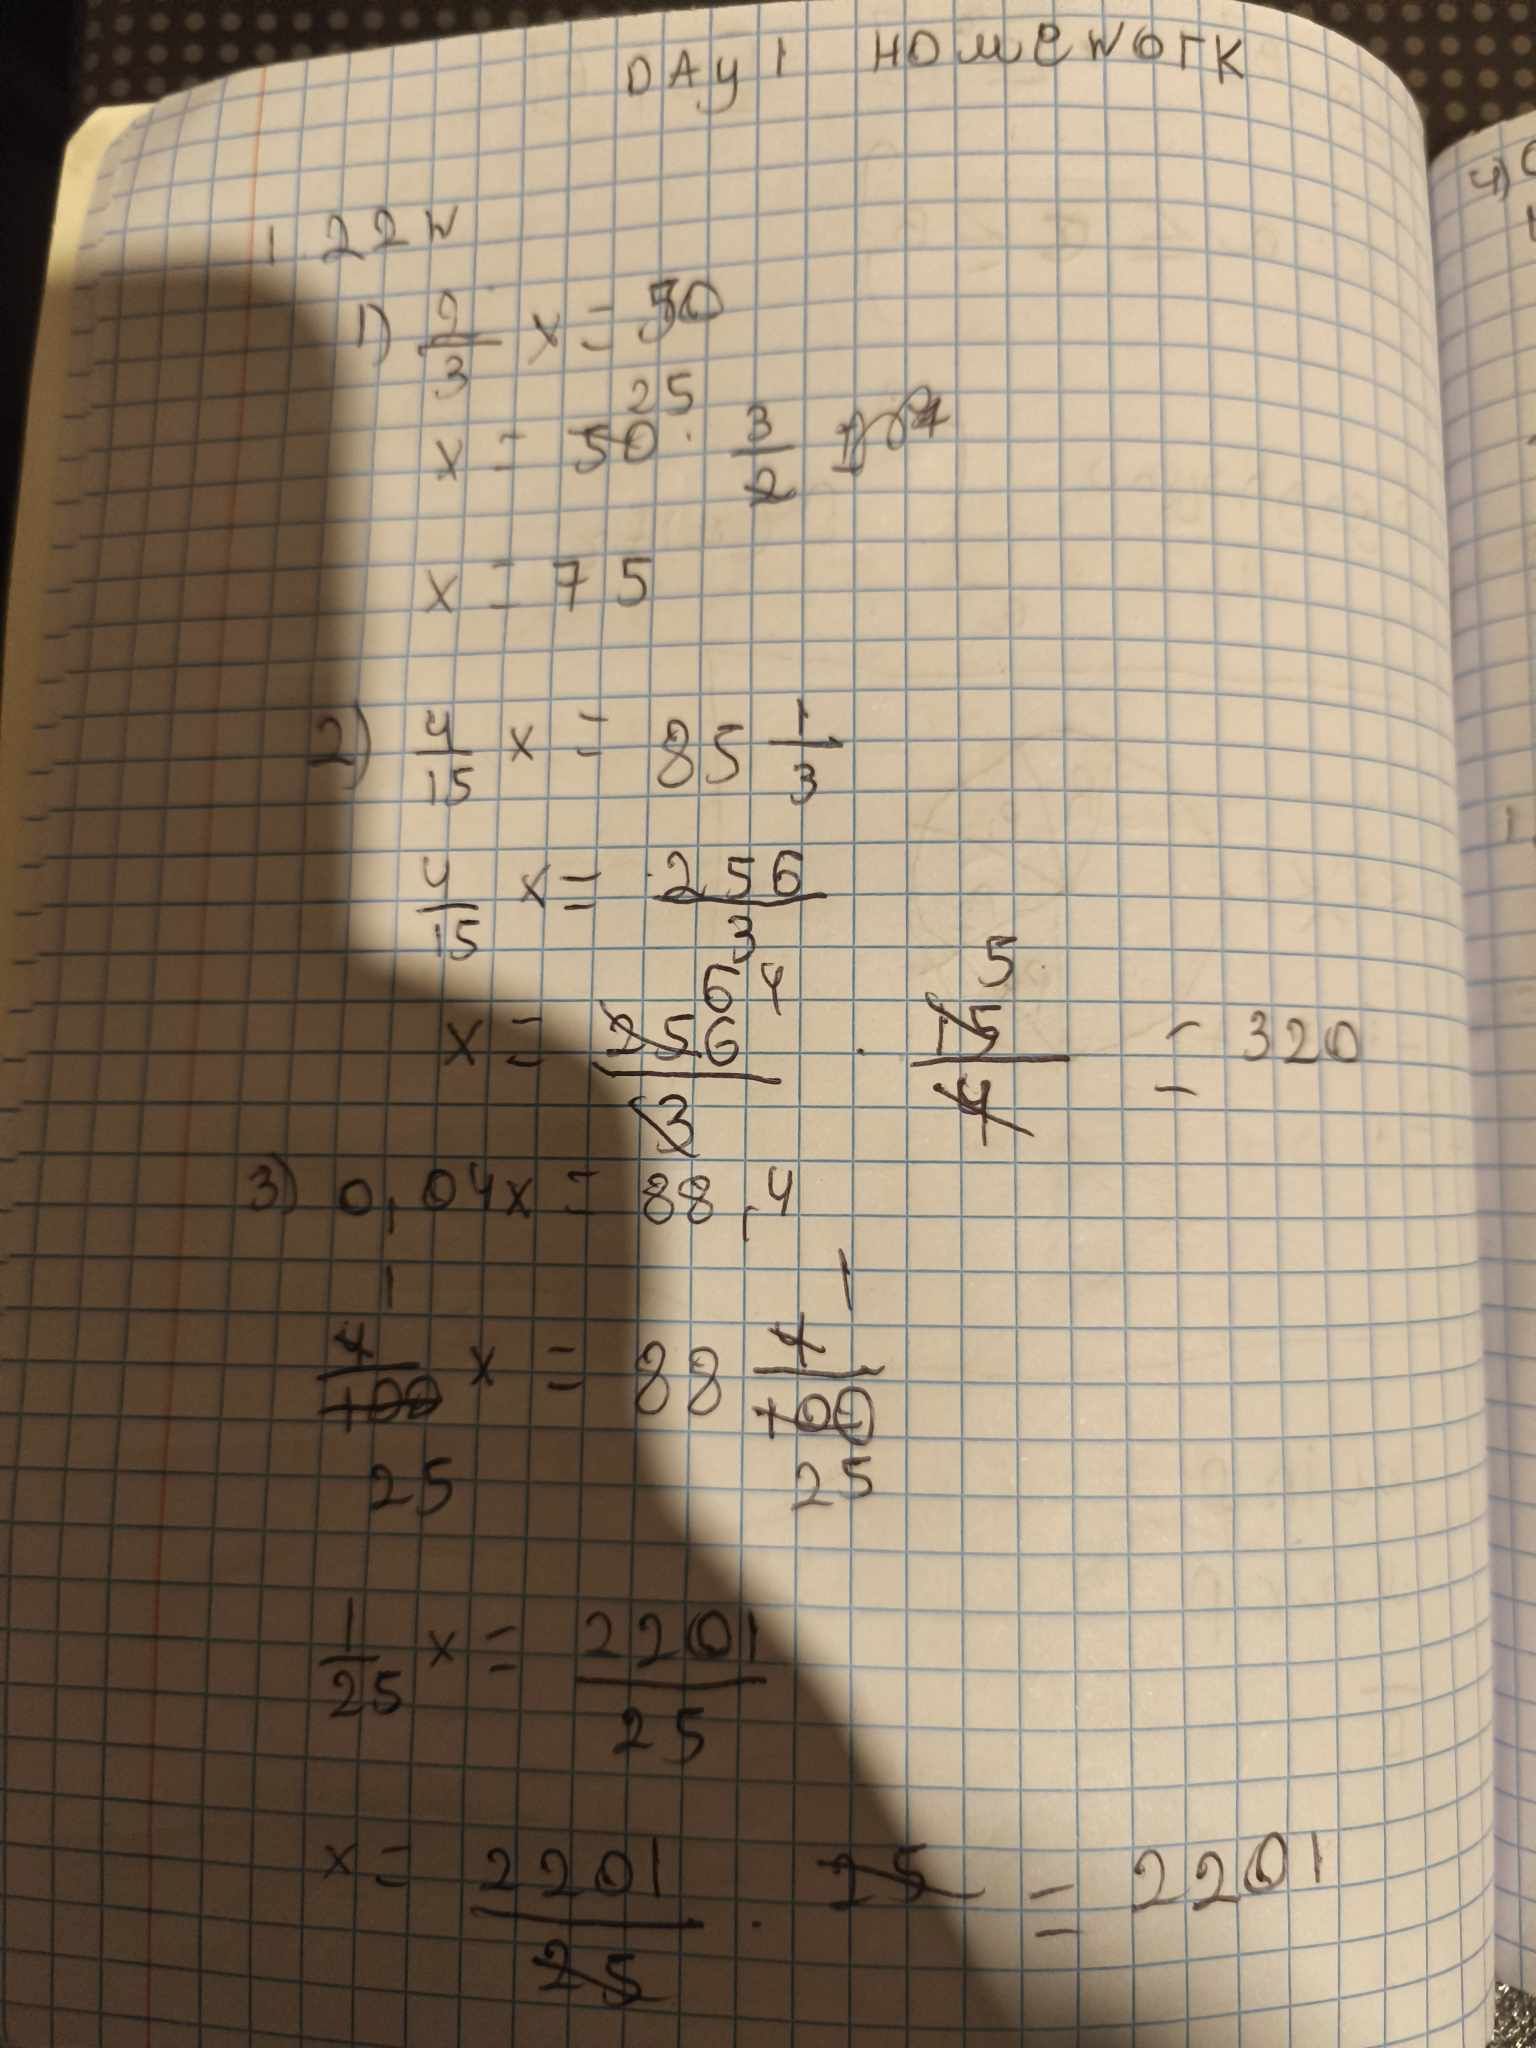 DAY 1 HOMEWORK
1. 22 W
1) 2/3 x = 50
25
x = 50 · 3/2
x = 75
2) 4/15 x = 85 1/3
4/15 x = 256/3
64 5
x = 256/3 · 15/4 = 320
3) 0,04x = 88,4
1 1
4/100 x = 88 4/100
25 25
1/25 x = 2201/25
x = 2201/25 · 25 = 2201
4)